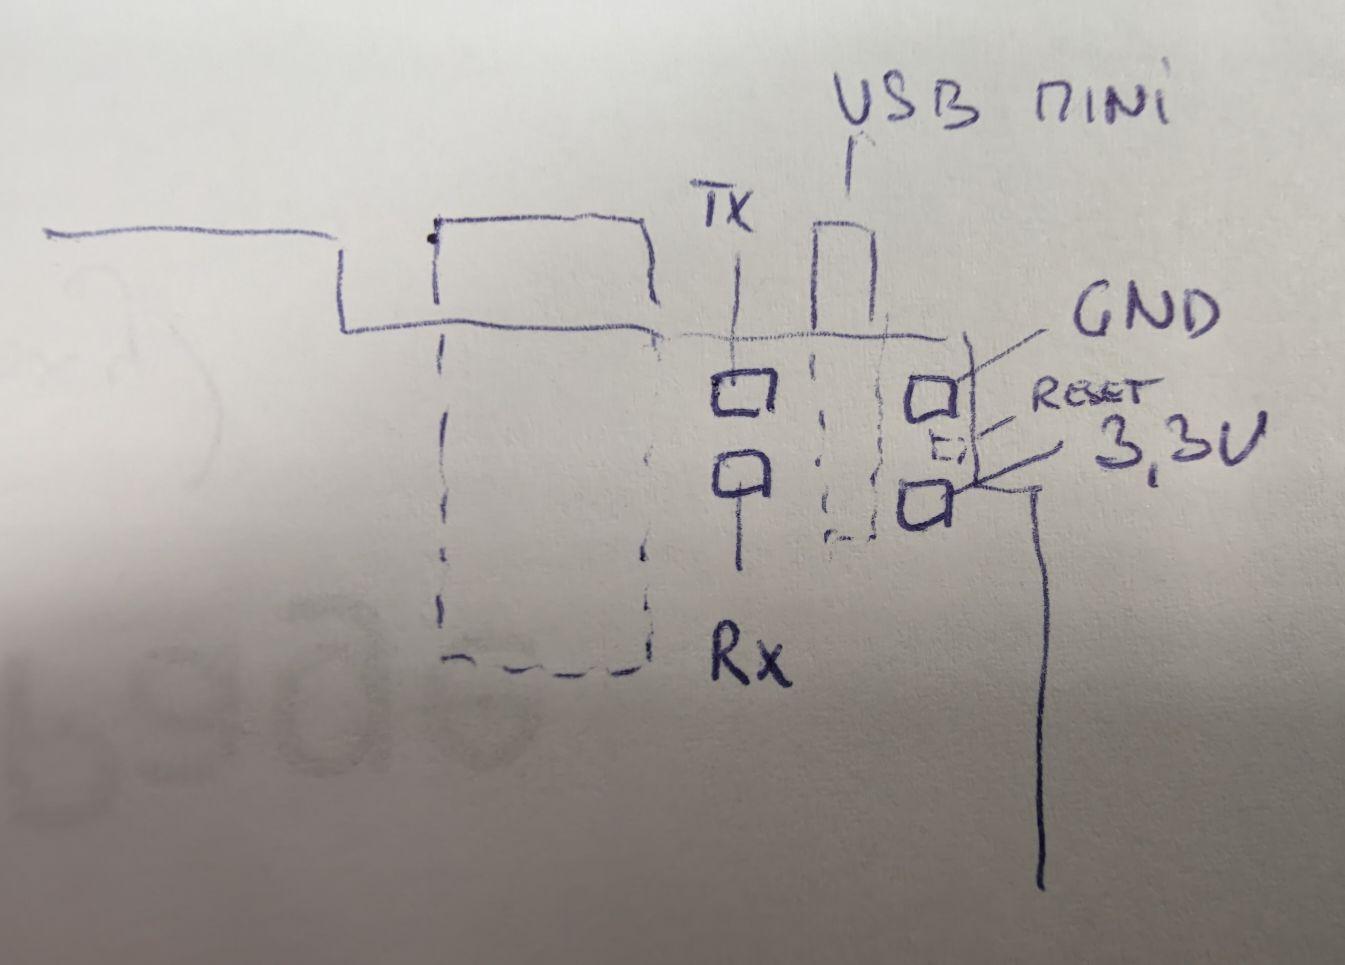 USB MINI
TX
GND
RESET
3,3V
Rx